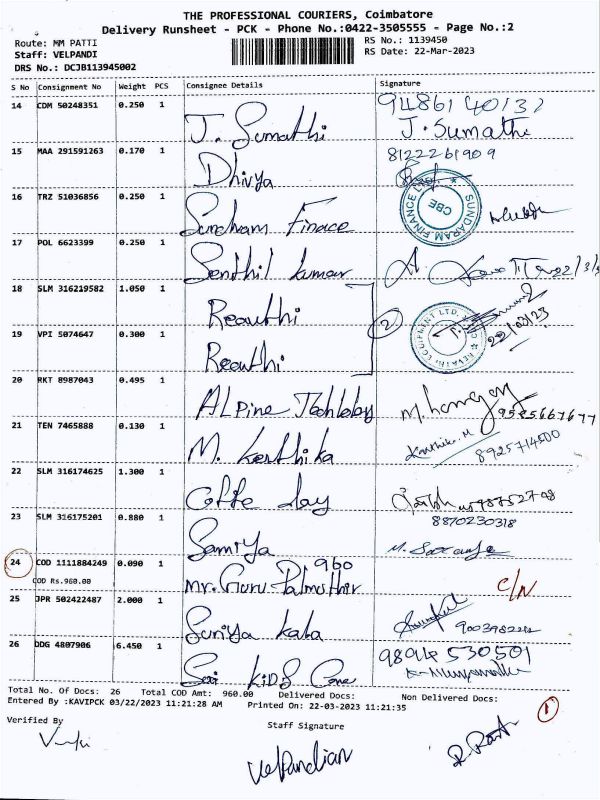 THE PROFESSIONAL COURIERS, Coimbatore
Delivery Runsheet - PCK - Phone No.:0422-3505555 - Page No.:2
Route: MM PATTI
RS No.: 1139450
Staff: VELPANDI
RS Date: 22-Mar-2023
DRS No.: DCJB113945002
S No Consignment No Weight PCS Consignee Details Signature
14 CDM 50248351 0.250 1 J. Sumathi 9486140132
J. Sumathi
15 MAA 291591263 0.170 1 Dhivya 8122261909
16 TRZ 51036856 0.250 1 Sundram Finace SUNDARAM FINANCE LTD CBE
17 POL 6623399 0.250 1 Senthil kumar
18 SLM 316219582 1.050 1 Reauthi 2
19 VPI 5074647 0.300 1 Reauthi 22/03/23
20 RKT 8987043 0.495 1 ALpine
21 TEN 7465888 0.130 1 M. Karthika Karthika. M 8925714500
22 SLM 316174625 1.300 1 Coffe day
23 SLM 316175201 0.880 1 Samiya 8870230318
24 COD 1111884249 0.090 1 960
COD Rs.960.00 Mr. Guru C/N
25 JPR 502422487 2.000 1 Suriya kala
26 DDG 4807906 6.450 1 Sai KiDS 9894530501
Total No. Of Docs: 26 Total COD Amt: 960.00 Delivered Docs: Non Delivered Docs:
Entered By :KAVIPCK 03/22/2023 11:21:28 AM Printed On: 22-03-2023 11:21:35
1
Verified By
Staff Signature
VelPandian